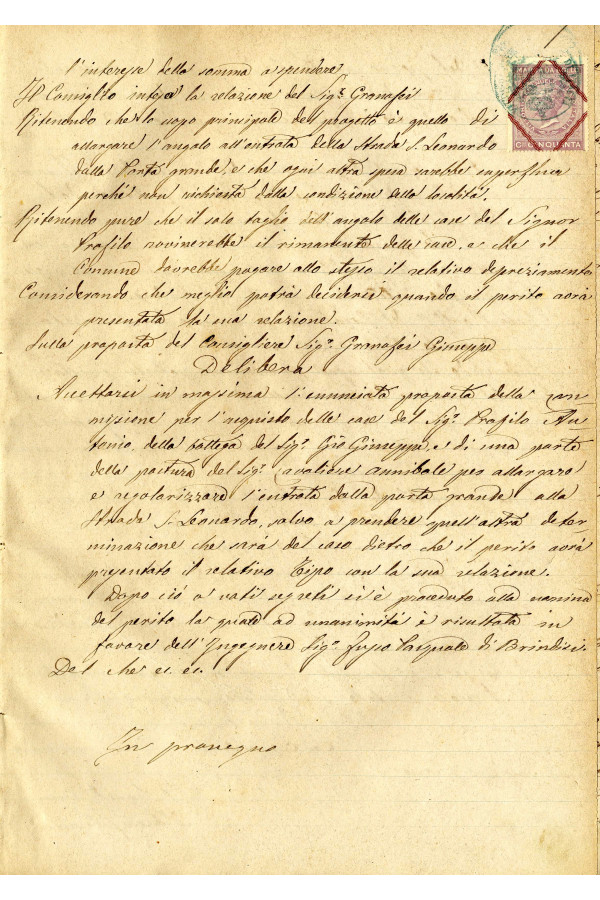 MARCA DA BOLLO
C.MI CINQUANTA
l'interesse della somma a spendere
Il Consiglio intesa la relazione del Sig.r Granafei
Ritenendo che lo scopo principale del progetto è quello di
allargare l'angolo all'entrata della Strada S. Leonardo
dalla Porta grande, e che ogni altra spesa sarebbe superflua
perchè non richiesta dalla condizione della località.
Ritenendo pure che il solo taglio dell'angolo delle case del Signor
Prafilo rovinerebbe il rimanente delle case, e che il
Comune dovrebbe pagare allo stesso il relativo depreziamento
Considerando che meglio potrà decidersi quando il perito avrà
presentata la sua relazione.
Sulla proposta del Consigliere Sig.r Granafei Giuseppe
Delibera
Accettarsi in massima l'enunciata proposta della com-
missione per l'acquisto delle case del Sig.r Prafilo An-
tonio, della bottega del Sig.r Giò Giuseppe, e di una parte
della del Sig.r Cavaliere Annibale per allargare
e regolarizzare l'entrata dalla porta grande alla
Strada S. Leonardo, salvo a prendere quell'altra deter-
minazione che sarà del caso dietro che il perito avrà
presentato il relativo tipo con la sua relazione.
Dopo ciò a voti segreti si è proceduto alla nomina
del perito la quale ad unanimità è risultata in
favore dell'Ingegnere Sig.r Pasquale di Brindisi.
Del che ec. ec.
In prosieguo